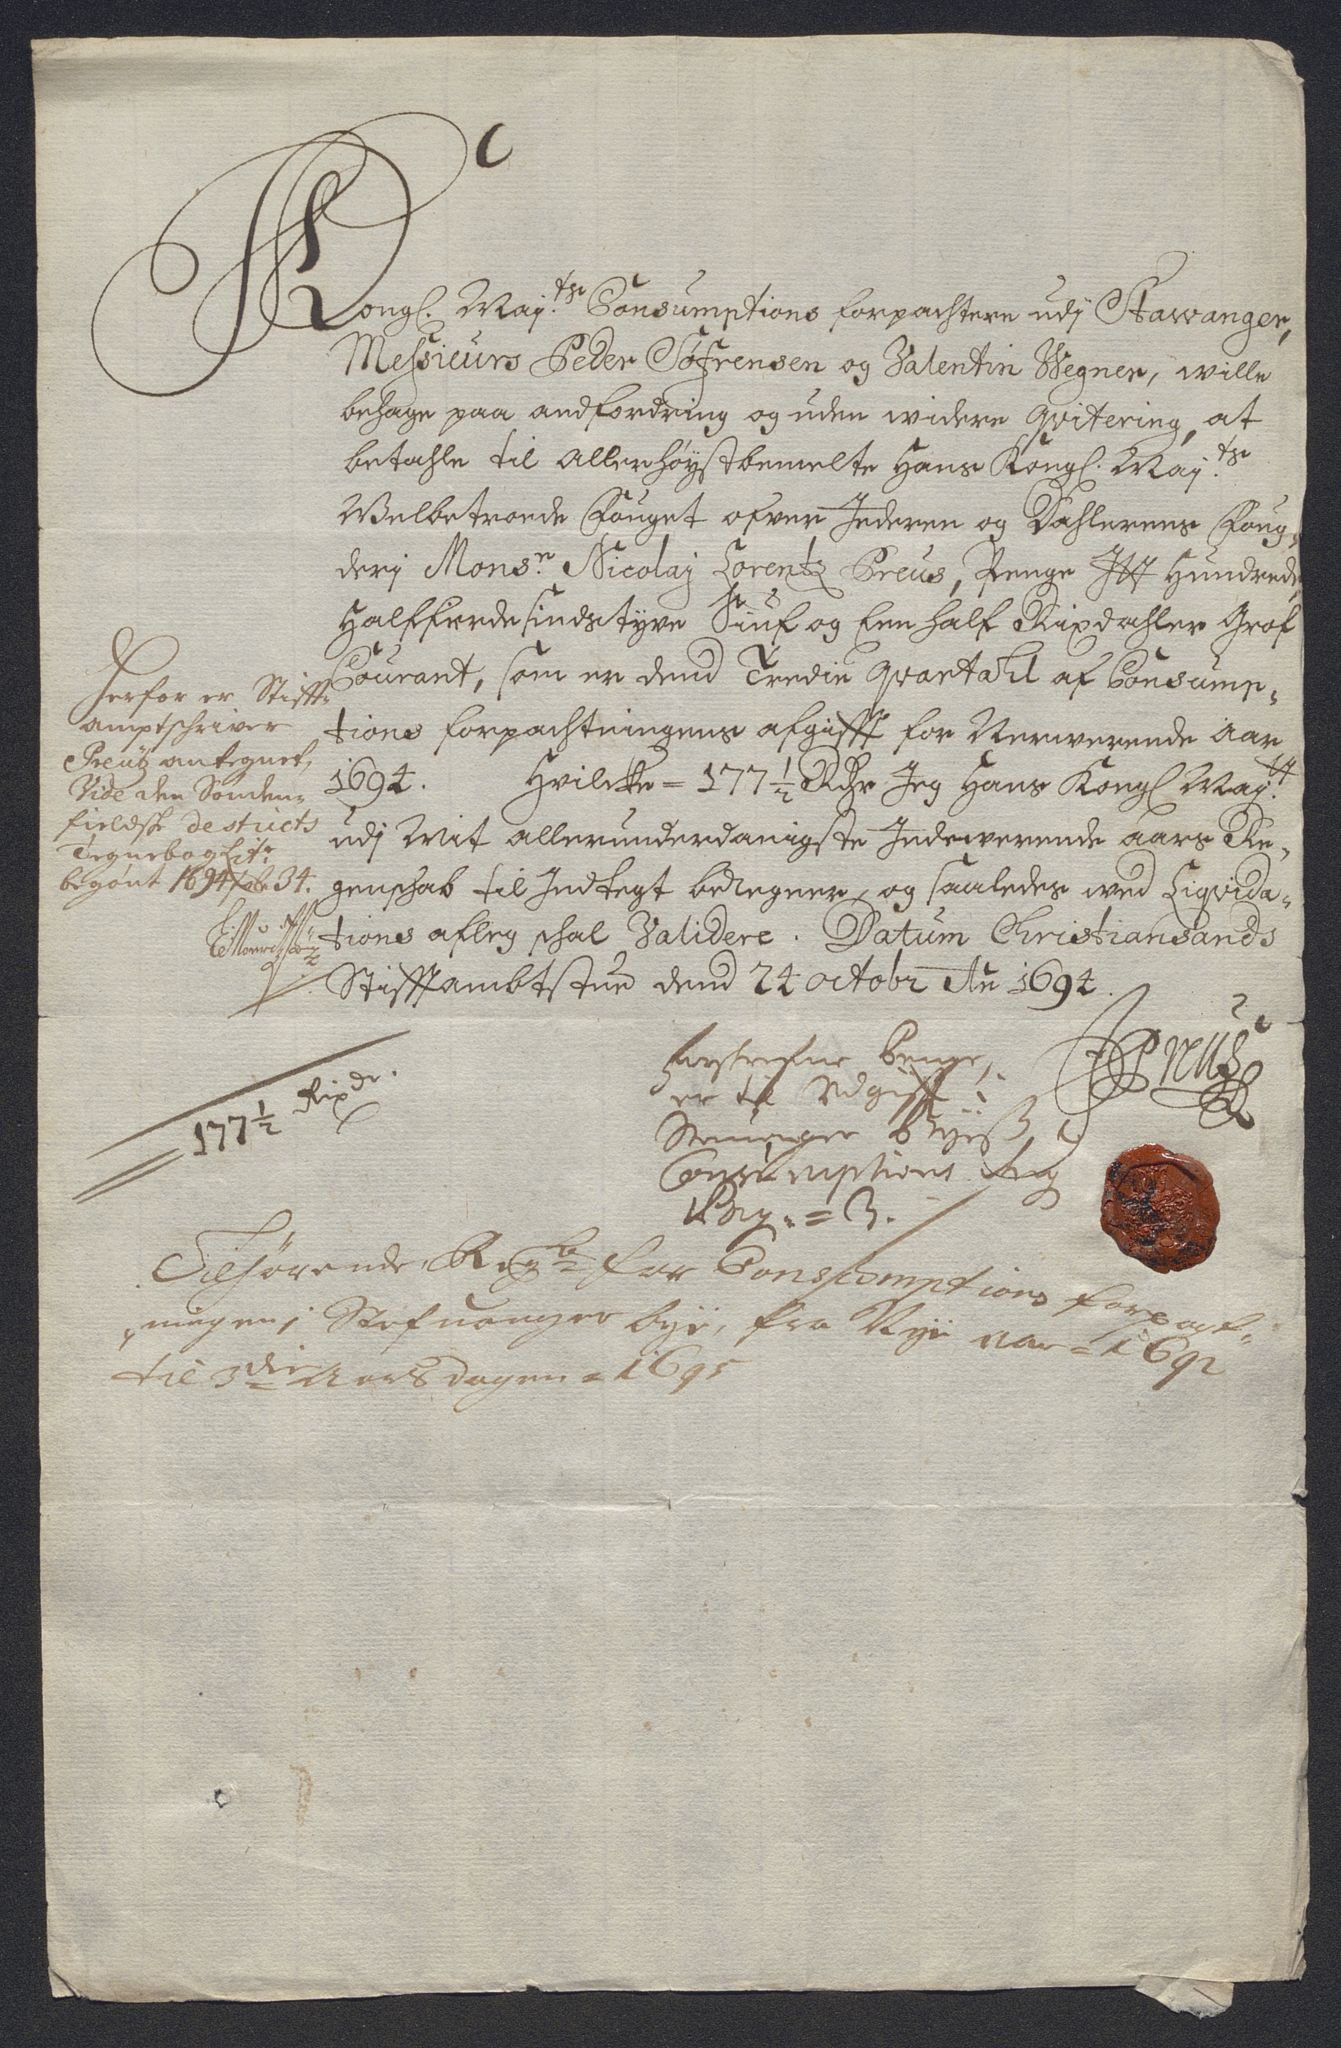 Kongl. May.ts Consumptions forpachtere udj Stavanger,
Messieurs Peder Söfrensen og Valentin Wegner, wille
behage paa andfordring og uden widere qvitering, at
betahle til allerhøystbemelte Hans Kongl. May.ts
Welbetroede Fouget ofver Jederen og Dahlernes Foug-
derj Mons.r Nicolaj Lorentz Preus, Penge Itt Hundrede
Halffierdesindstyve Siuf og Een half Rixdahler Grof
Courant, som er dend Tredie qvartahl af Consump-
tions forpachtningens afgifft for Nerwerende Aar
1694. Hvilcke = 177 1/2 Rdr Jeg Hans Kongl May.tt
udj Mit allerunderdanigste Indewerende aars Re-
genschab til Indtegt beregner, og saaledes wed Liqvida-
tions aflegg schal Validere. Datum Christiansands
Stifftambtstue dend 24 octobr Ao 1694.
Herfor er Stifft-
amptschriver
Preutz antegnet,
Vide den Sønden-
fieldske destricts
Tegnebog Litr
begynt 1694 fol: 34.
JPreus
177 1/2 Rixdr.
forschrefne Penge,
er til Udgifft i
Stavanger Byes
Consumptions Reg
Pag. = 3.
Tilhørende Regb for Consomptions forpagt-
ningen i Stafuanger bye, fra Nye aar = 1692
til 3die Aarsdagen = 1695